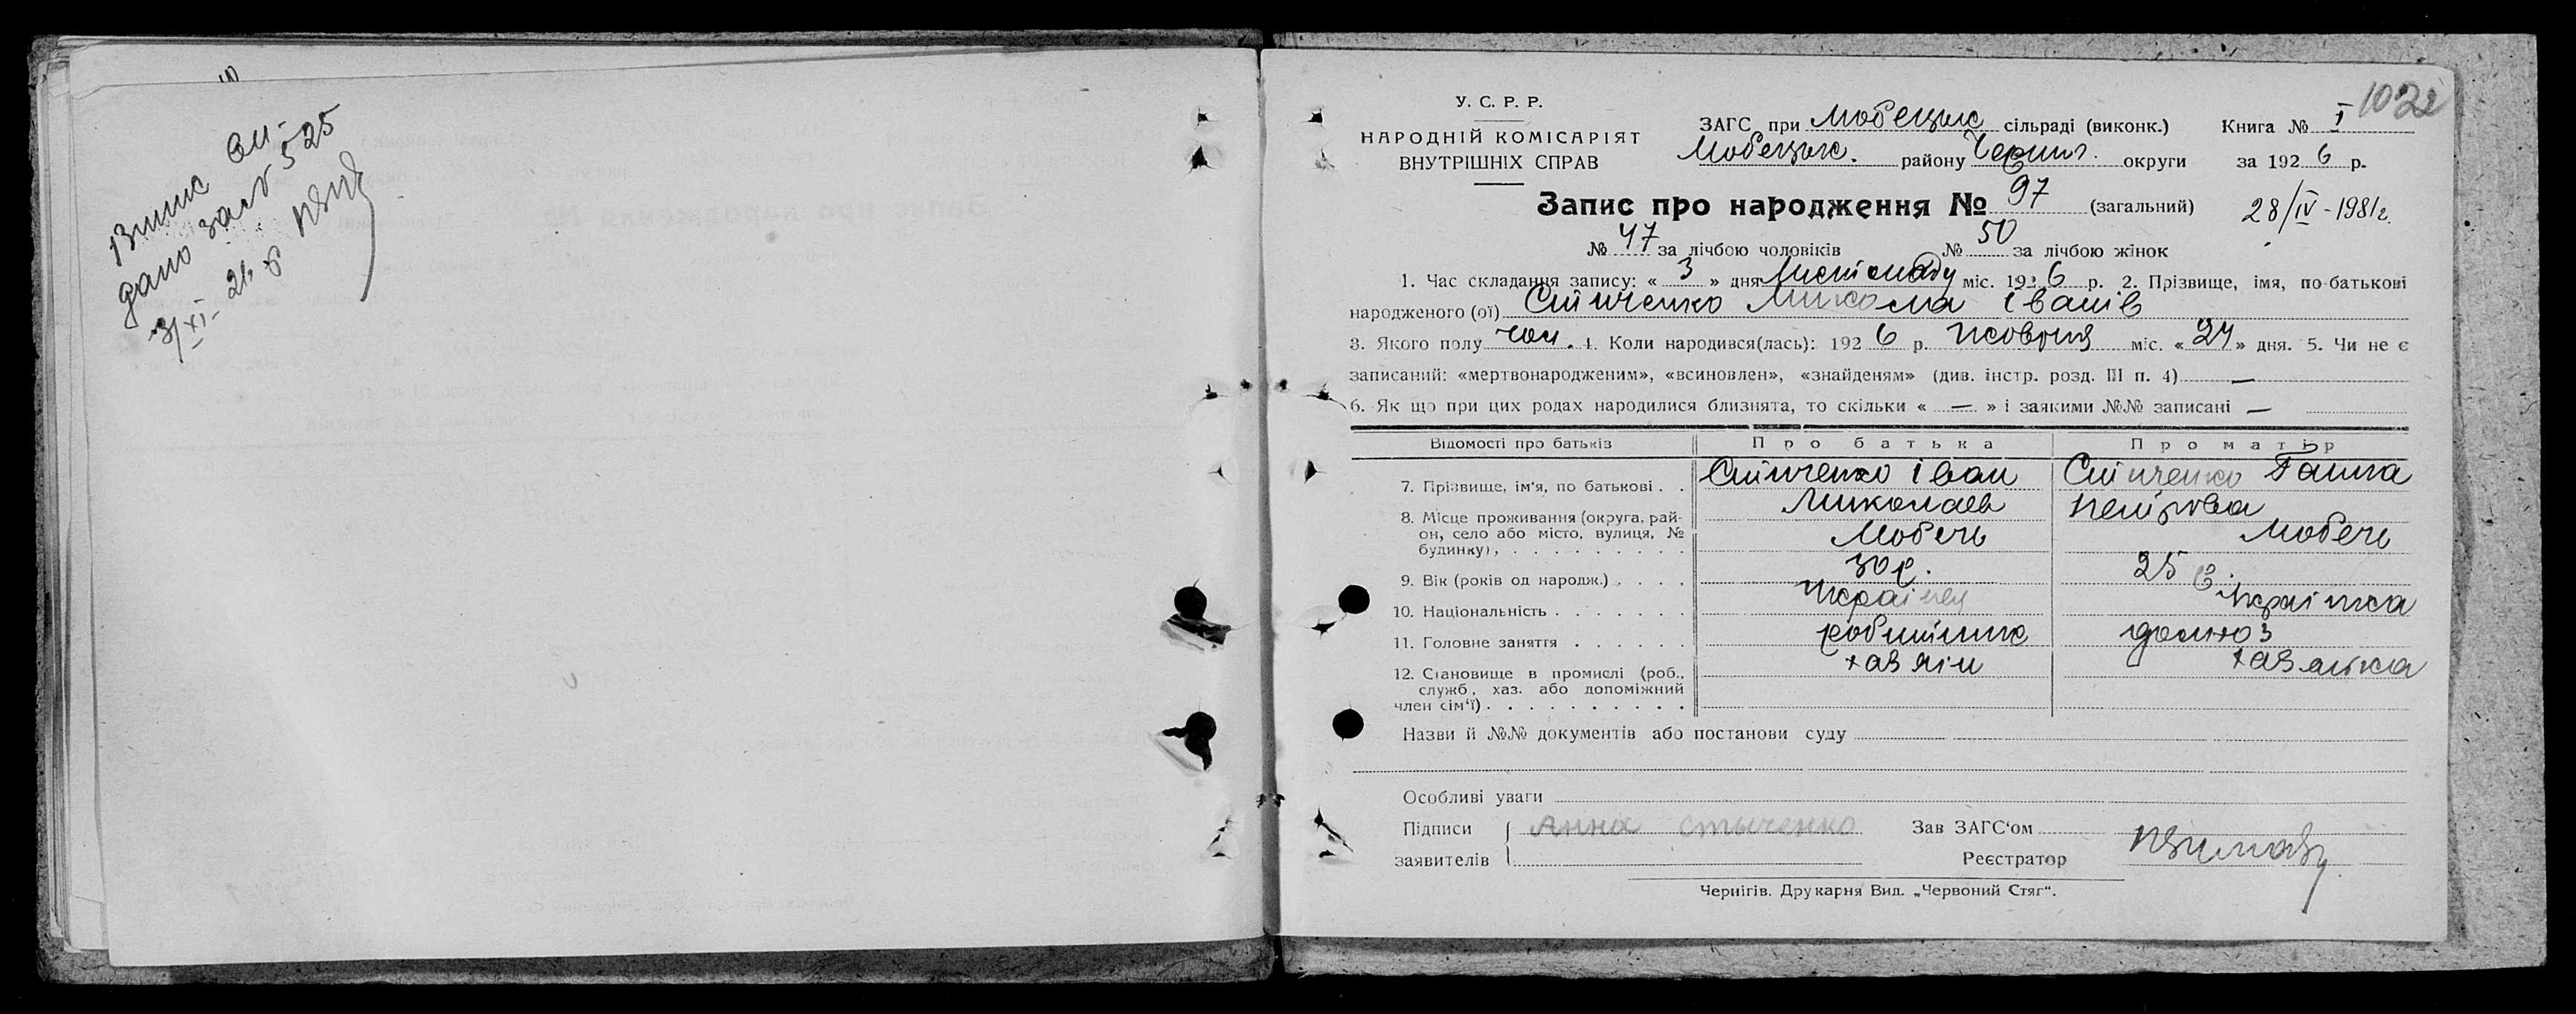 Випис
дано за № 525
3/XI- 26 р
1022
У. С. Р. Р.
НАРОДНІЙ КОМІСАРІЯТ
ВНУТРІШНІХ СПРАВ
ЗАГС при Любецьк сільраді (виконк.) Книга № I
Любецьк. району Черниг. округи за 1926 р.
Запис про народження № 97 (загальний) 28/IV-1981г.
№ 47 за лічбою чоловіків № 50 за лічбою жінок
1. Час складання запису: « 3 » дня Листопаду міс. 1926 р. 2. Прізвище, імя, по-батькові
народженого (ої) Стіченко Микола Іванів
3. Якого полу чол. 4. Коли народився(лась): 1926 р. Жовтня міс. « 24 » дня. 5. Чи не є
записаний: «мертвонародженим», «всиновлен», «знайденям» (див. інстр. розд. III п. 4) —
6. Як що при цих родах народилися близнята, то скільки « — » і заякими №№ записані —
Відомості про батьків Про батька Про матір
7. Прізвище, ім'я, по батькові . . Стіченко Іван Стіченко Ганна
Миколаев Петрова
8. Місце проживання (округа, рай-
он, село або місто, вулиця, №
будинку), . . . . . . . . . Любеч Любеч
9. Вік (років од народж.) . . . . 30 р. 25 р.
10. Національність . . . . . . . Українец Українка
11. Головне заняття . . . . . . робітник домхоз
12. Становище в промислі (роб., хазяїн хазяйка
служб, хаз. або допоміжний
член сім'ї) . . . . . . . . . .
Назви й №№ документів або постанови суду
Особливі уваги
Підписи Анна Стыченко Зав ЗАГС'ом
заявителів Реєстратор
Чернігів. Друкарня Вид. „Червоний Стяг“.